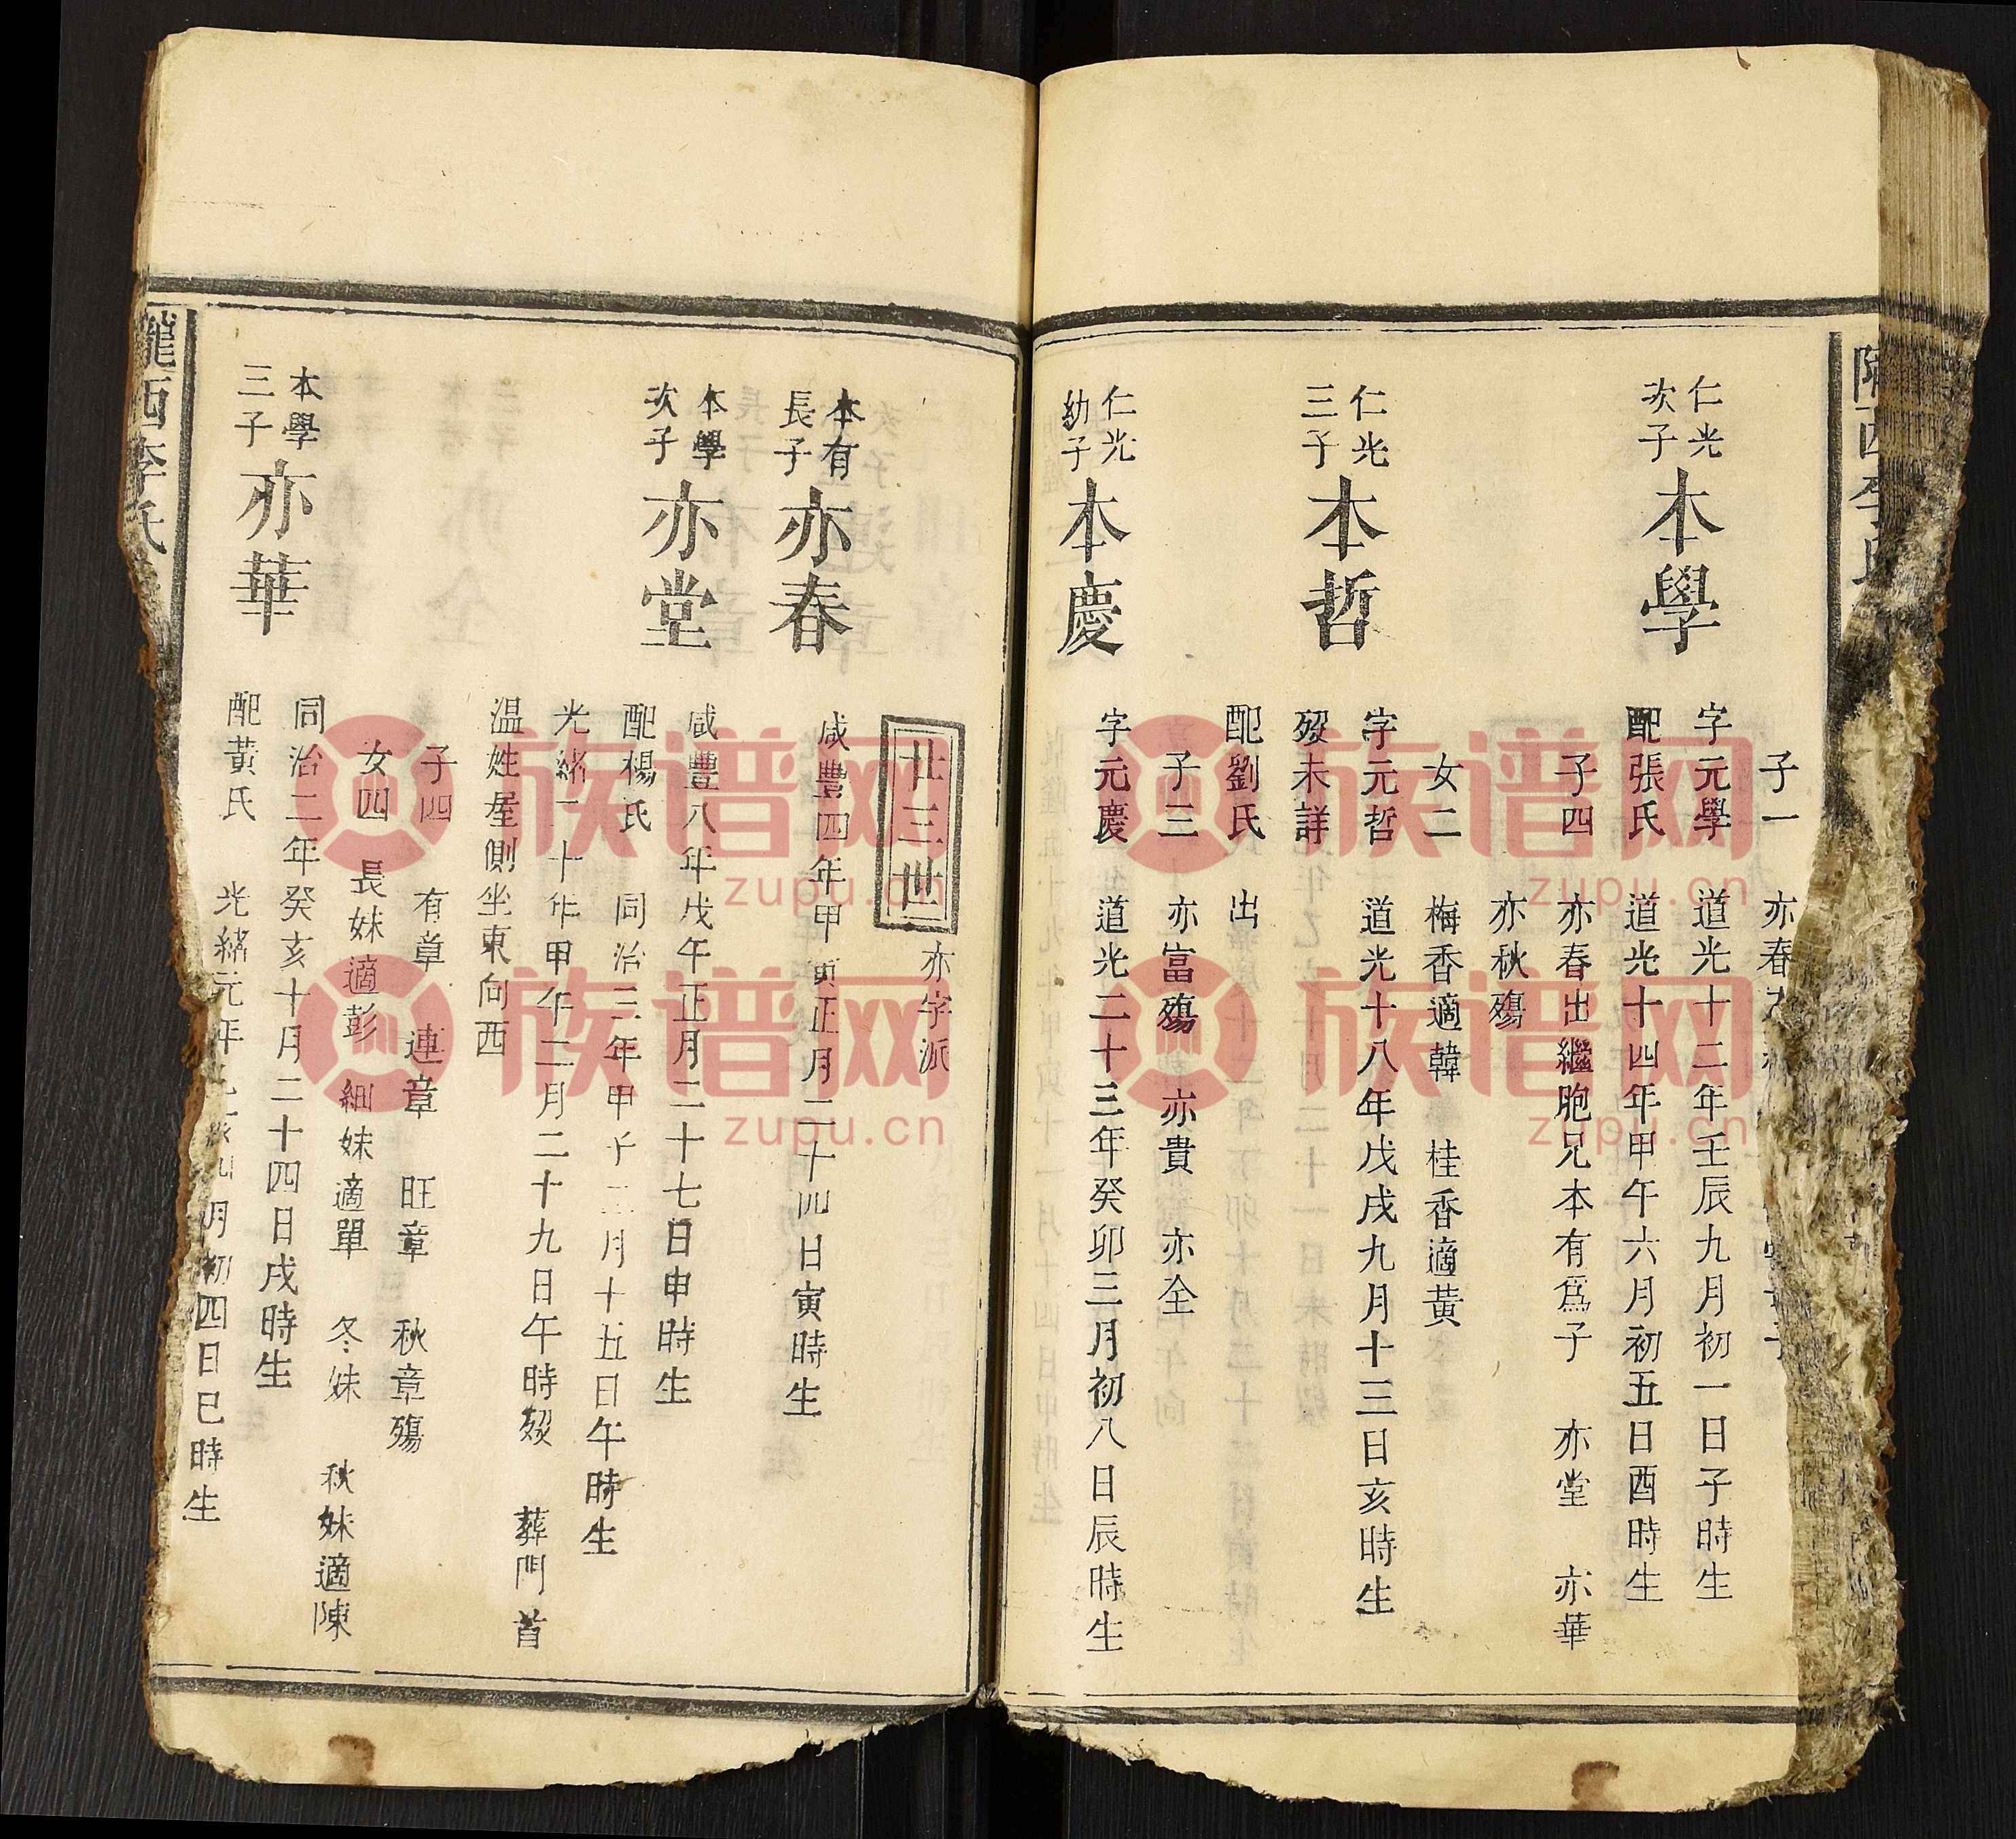 隴西李氏
子一　亦春
仁光
次子
本學
字元學　道光十二年壬辰九月初一日子時生
配張氏　道光十四年甲午六月初五日酉時生
子四　亦春出繼胞兄本有爲子　亦堂　亦華
亦秋殤
女二　梅香適韓　桂香適黃
仁光
三子
本哲
字元哲　道光十八年戊戌九月十三日亥時生
歿未詳
配劉氏　出
子三　亦富殤　亦貴　亦全
仁光
幼子
本慶
字元慶　道光二十三年癸卯三月初八日辰時生
廿三世
亦字派
本有
長子
亦春
咸豐四年甲寅正月二十四日寅時生
本學
次子
亦堂
咸豐八年戊午正月二十七日申時生
配楊氏　同治三年甲子二月十五日午時生
光緒二十年甲午二月二十九日午時歿　葬門首
温姓屋側坐東向西
子四　有章　連章　旺章　秋章殤
女四　長妹適彭　細妹適單　冬妹　秋妹適陳
本學
三子
亦華
同治二年癸亥十月二十四日戌時生
配黃氏　光緒元年乙亥四月初四日巳時生
隴西李氏
族谱网
zupu.cn
族谱网
zupu.cn
族谱网
zupu.cn
族谱网
zupu.cn